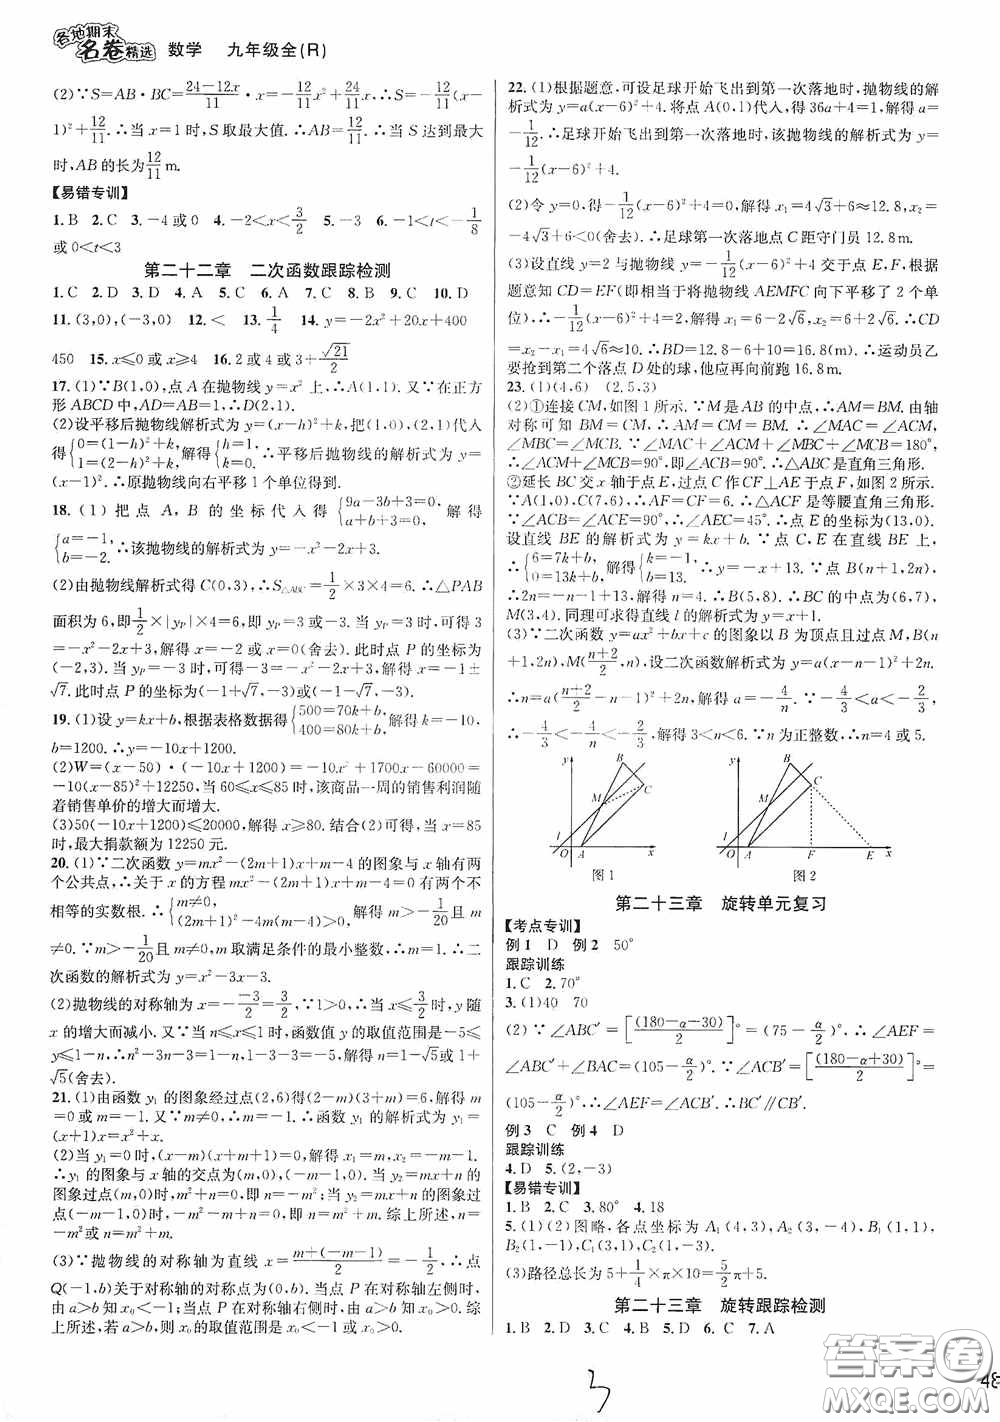 各地期末
名卷精选 数学 九年级全(R)
(2)∵S=AB·BC=(24-12x)/11·x=-12/11x²+24/11x,∴S=-12/11(x-
1)²+12/11.∴当x=1时,S取最大值.∴AB=12/11.∴当S达到最大
时,AB的长为12/11m.
【易错专训】
1.B 2.C 3.-4或0 4.-2<x<3/2 5.-3 6.-1<t<-1/8
或0<t<3
第二十二章 二次函数跟踪检测
1.C 2.D 3.D 4.A 5.C 6.A 7.C 8.B 9.C 10.D
11.(3,0),(-3,0) 12.< 13.1/4 14.y=-2x²+20x+400
450 15.x≤0或x≥4 16.2或4或3+√21/2
17.(1)∵B(1,0),点A在抛物线y=x²上,∴A(1,1).又∵在正方
形ABCD中,AD=AB=1,∴D(2,1).
(2)设平移后抛物线解析式为y=(x-h)²+k,把(1,0),(2,1)代入
得{0=(1-h)²+k, 1=(2-h)²+k,解得{h=1, k=0.∴平移后抛物线的解析式为y=
(x-1)².∴原抛物线向右平移1个单位得到.
18.(1)把点A,B的坐标代入得{9a-3b+3=0, a+b+3=0,解得
{a=-1, b=-2.∴该抛物线的解析式为y=-x²-2x+3.
(2)由抛物线解析式得C(0,3),∴S△ABC=1/2×3×4=6.∴△PAB
面积为6,即1/2×|yP|×4=6,即yP=3或-3.当yP=3时可得3
=-x²-2x+3,解得x=-2或x=0(舍去).此时点P的坐标为
(-2,3).当yP=-3时,可得-3=-x²-2x+3,解得x=-1±
√7,此时点P的坐标为(-1+√7,-3)或(-1-√7,-3)
19.(1)设y=kx+b,根据表格数据得{500=70k+b, 400=80k+b,解得k=-10,
b=1200.∴y=-10x+1200.
(2)W=(x-50)·(-10x+1200)=-10x²+1700x-60000=
-10(x-85)²+12250,当60≤x≤85时,该商品一周的销售利润随
着销售单价的增大而增大.
(3)50(-10x+1200)≤20000,解得x≥80.结合(2)可得,当x=85
时,最大捐款额为12250元.
20.(1)∵二次函数y=mx²-(2m+1)x+m-4的图象与x轴有两
个公共点,∴关于x的方程mx²-(2m+1)x+m-4=0有两个不
相等的实数根.∴{m≠0, (2m+1)²-4m(m-4)>0.解得m>-1/20且m
≠0.∵m>-1/20且m≠0,m取满足条件的最小整数,∴m=1.∴二
次函数的解析式为y=x²-3x-3.
(2)抛物线的对称轴为x=--3/2=3/2,∵1>0,∴当x≤3/2时,y随
x的增大而减小.又∵当n≤x≤1时,函数值y的取值范围是-5≤
y≤1-n,∴n²-3n-3=1-n,即n²-2n-4=0,解得n=1-√5或1+
√5(舍去).
21.(1)由函数y₁的图象经过点(2,6)得(2-m)(3+m)=6,解得m
=0或m=-1.又∵m≠0,∴m=-1.∴函数y₁的解析式为y=
(x+1)x=x²+x.
(2)当y=0时,(x-m)(x+m+1)=0,解得x₁=m,x₂=-m-1.
∴y₁的图象与x轴的交点为(m,0),(-m-1,0).当y₂=mx+n的
图象过点(m,0)时,m²+n=0,即n=-m²;当y₂=mx+n的图象过点
(-m-1,0)时,-m²-m+n=0,即n=m²+m.综上所述,n=-m²
或n=m²+m.
(3)∵抛物线的对称轴为直线x=m+(-m-1)/2=-1/2,∴点
Q(-1,b)关于对称轴的对称点为(0,b).当点P在对称轴左侧时,
由a>b知x₀<-1;当点P在对称轴右侧时,由a>b知x₀>0.综
上所述,若a>b,则x₀的取值范围是x₀<-1或x₀>0.
22.(1)根据题意,可设足球开始飞出到第一次落地时,抛物线的解
析式为y=a(x-6)²+4.将点A(0,1)代入,得36a+4=1,解得a=
-1/12.∴足球开始飞出到第一次落地时,该抛物线的解析式为y=
-1/12(x-6)²+4.
(2)令y=0,得-1/12(x-6)²+4=0,解得x₁=4√3+6≈12.8,x₂=
-4√3+6≈0(舍去).∴足球第一次落地点C距守门员12.8m.
(3)设直线y=2与抛物线y=-1/12(x-6)²+4交于点E,F,根据
题意知CD=EF(即相当于将抛物线AEMFC向下平移了2个单
位),∴-1/12(x-6)²+4=2,解得x₁=6-2√6,x₂=6+2√6.∴CD
=x₂-x₁=4√6≈10.∴BD=12.8-6+10=16.8(m).∴运动员乙
要抢到第二个落点D处的球,他应再向前跑16.8m.
23.(1)(4,6) (2.5,3)
(2)①连接CM,如图1所示.∵M是AB的中点,∴AM=BM.由轴
对称可知BM=CM,∴AM=CM=BM.∴∠MAC=∠ACM,
∠MBC=∠MCB.∵∠MAC+∠ACM+∠MBC+∠MCB=180°,
∴∠ACM+∠MCB=90°,即∠ACB=90°.∴△ABC是直角三角形.
②延长BC交x轴于点E,过点C作CF⊥AE于点F,如图2所示.
∵A(1,0),C(7,6),∴AF=CF=6.∴△ACF是等腰直角三角形.
∵∠ACB=∠ACE=90°,∴∠AEC=45°.∴点E的坐标为(13,0).
设直线BE的解析式为y=kx+b.∵点C,E在直线BE上,
∴{6=7k+b, 0=13k+b,解得{k=-1, b=13.∴y=-x+13.∵点B(n+1,2n),
∴2n=-n-1+13,解得n=4.∴B(5,8).∴BC的中点为(6,7),
M(3,4).同理可求得直线l的解析式为y=x+1.
(3)∵二次函数y=ax²+bx+c的图象以B为顶点且过点M,B(n
+1,2n),M((n+2)/2,n),设二次函数解析式为y=a(x-n-1)²+2n,
∴n=a((n+2)/2-n-1)²+2n,解得a=-4/n.∵-4/3<a<-2/3,
∴-4/3<-4/n<-2/3,解得3<n<6.∵n为正整数,∴n=4或5.
y B C M l O A x
图1
y B C M l O A F E x
图2
第二十三章 旋转单元复习
【考点专训】
例1 D 例2 50°
跟踪训练
1.C 2.70°
3.(1)40 70
(2)∵∠ABC′=[(180-α-30)/2]°=(75-α/2)°.∴∠AEF=
∠ABC′+∠BAC=(105-α/2)°.∵∠ACB′=[(180-α+30)/2]°=
(105-α/2)°,∴∠AEF=∠ACB′.∴BC′∥CB′.
例3 C 例4 D
跟踪训练
4.D 5.(2,-3)
【易错专训】
1.B 2.C 3.80° 4.18
5.(1)(2)图略,各点坐标为A₁(4,3),A₂(3,-4),B₁(1,1),
B₂(1,-1),C₁(3,1),C₂(1,-3).
(3)路径总长为5+1/4×π×10=5/2π+5.
第二十三章 旋转跟踪检测
1.B 2.D 3.C 4.B 5.B 6.C 7.A
3
48
答案圈
MXQE.COM